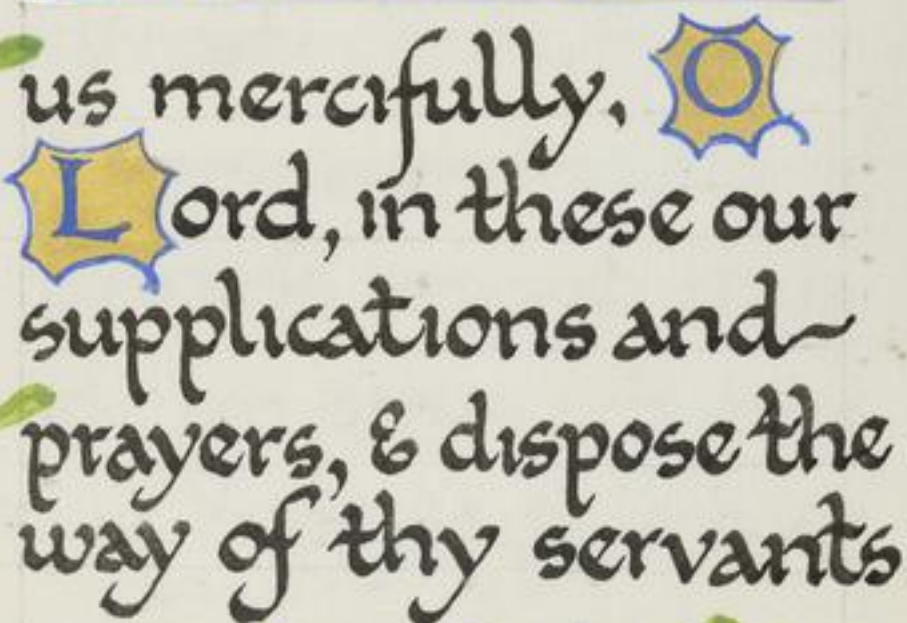 us mercifully. O
Lord, in these our
supplications and~
prayers, & dispose the
way of thy servants